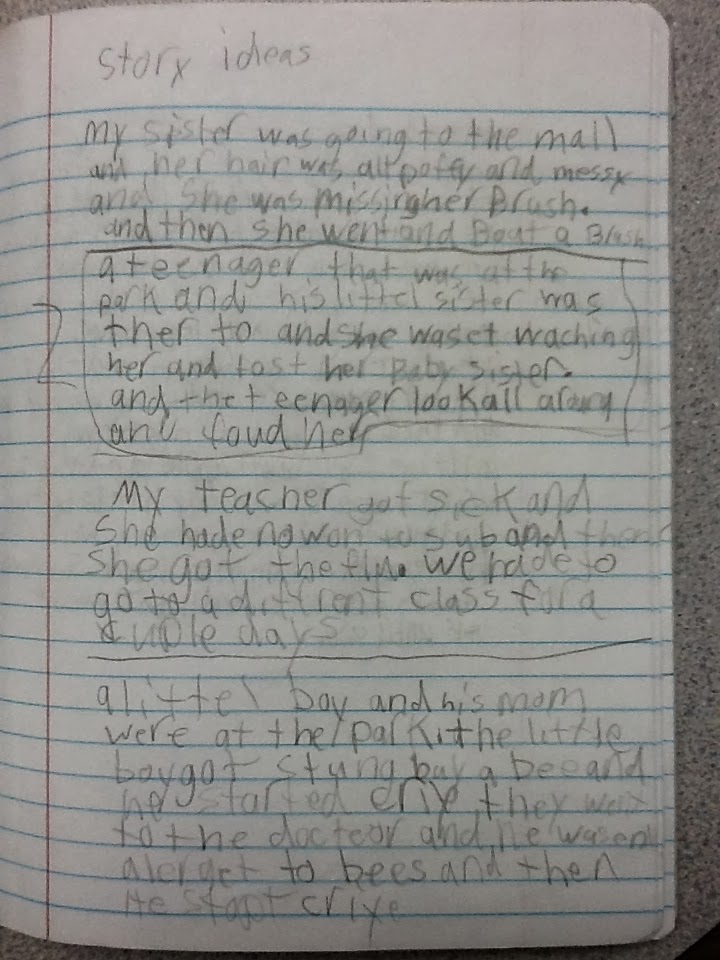 story ideas
my sister was going to the mall
and her hair was all poffy and messy
and she was missing her Brush.
and then she went and Bout a Brush
a teenager that was at the
park and his littel sister was
ther to and she waset waching
her and lost her Baby sister.
and the teenager look all aroung
and foud her
My teacher got sick and
She hade no won to sub and then
she got the flu. we hade to
go to a diffrent class for a
cuple days
a littel boy and his mom
were at the park. the little
boy got stung buy a bee and
he started crixe they went
to the docteor and he wasen
alerget to bees and then
He stopt crixe